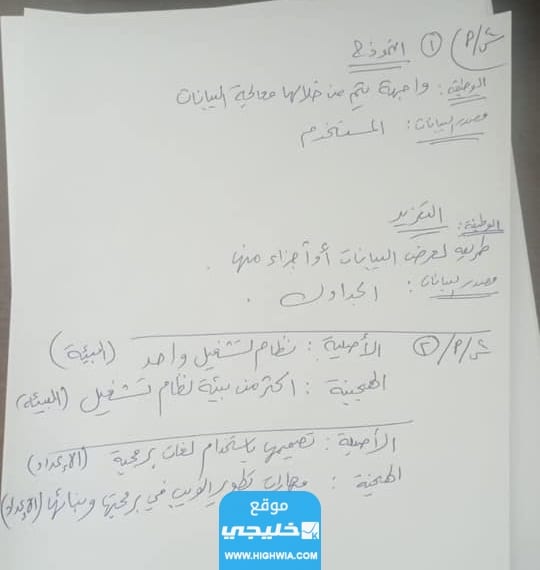 س/٢/ ① النموذج
الوظيفة: واجهة يتم من خلالها معالجة البيانات
مصدر البيانات: المستخدم
التقرير
الوظيفة:
طريقة لعرض البيانات أو أجزاء منها.
مصدر البيانات: الجداول.
س/٢/ ② الأصلية: نظام تشغيل واحد (البيئة)
الهجينة: اكثر من بيئة لنظام تشغيل (البيئة)
الأصلية: تصميمها باستخدام لغات برمجية (الإعداد)
الهجينة: مهارات تطوير الويب في برمجتها وبنائها (الإعداد)
موقع
خليجي
WWW.HIGHWIA.COM